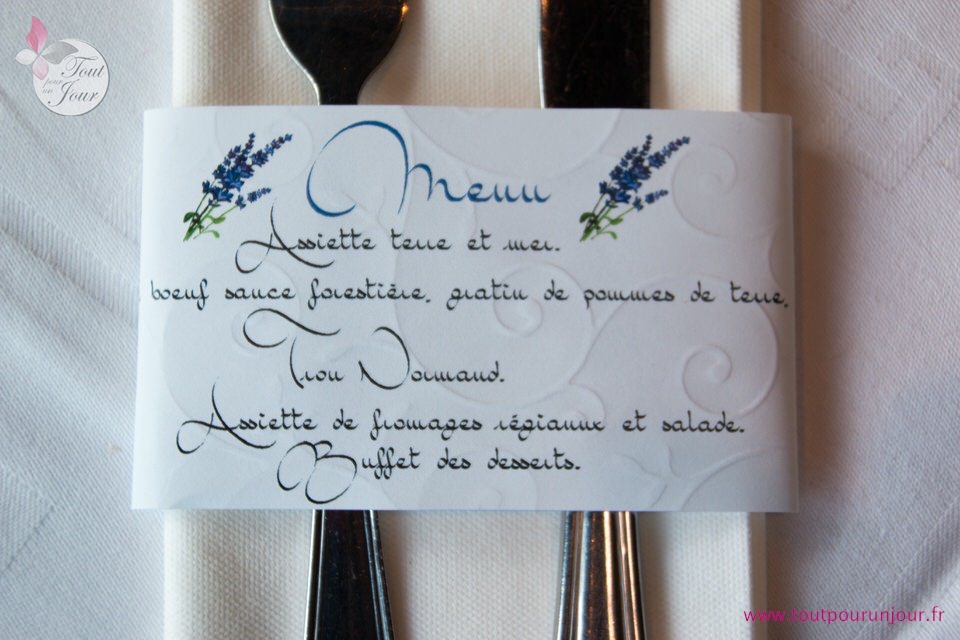 Tout
pour
un
Jour
Menu
Assiette terre et mer.
boeuf sauce forestière, gratin de pommes de terre,
Trou Normand.
Assiette de fromages régiaunx et salade.
Buffet des desserts.
www.toutpourunjour.fr